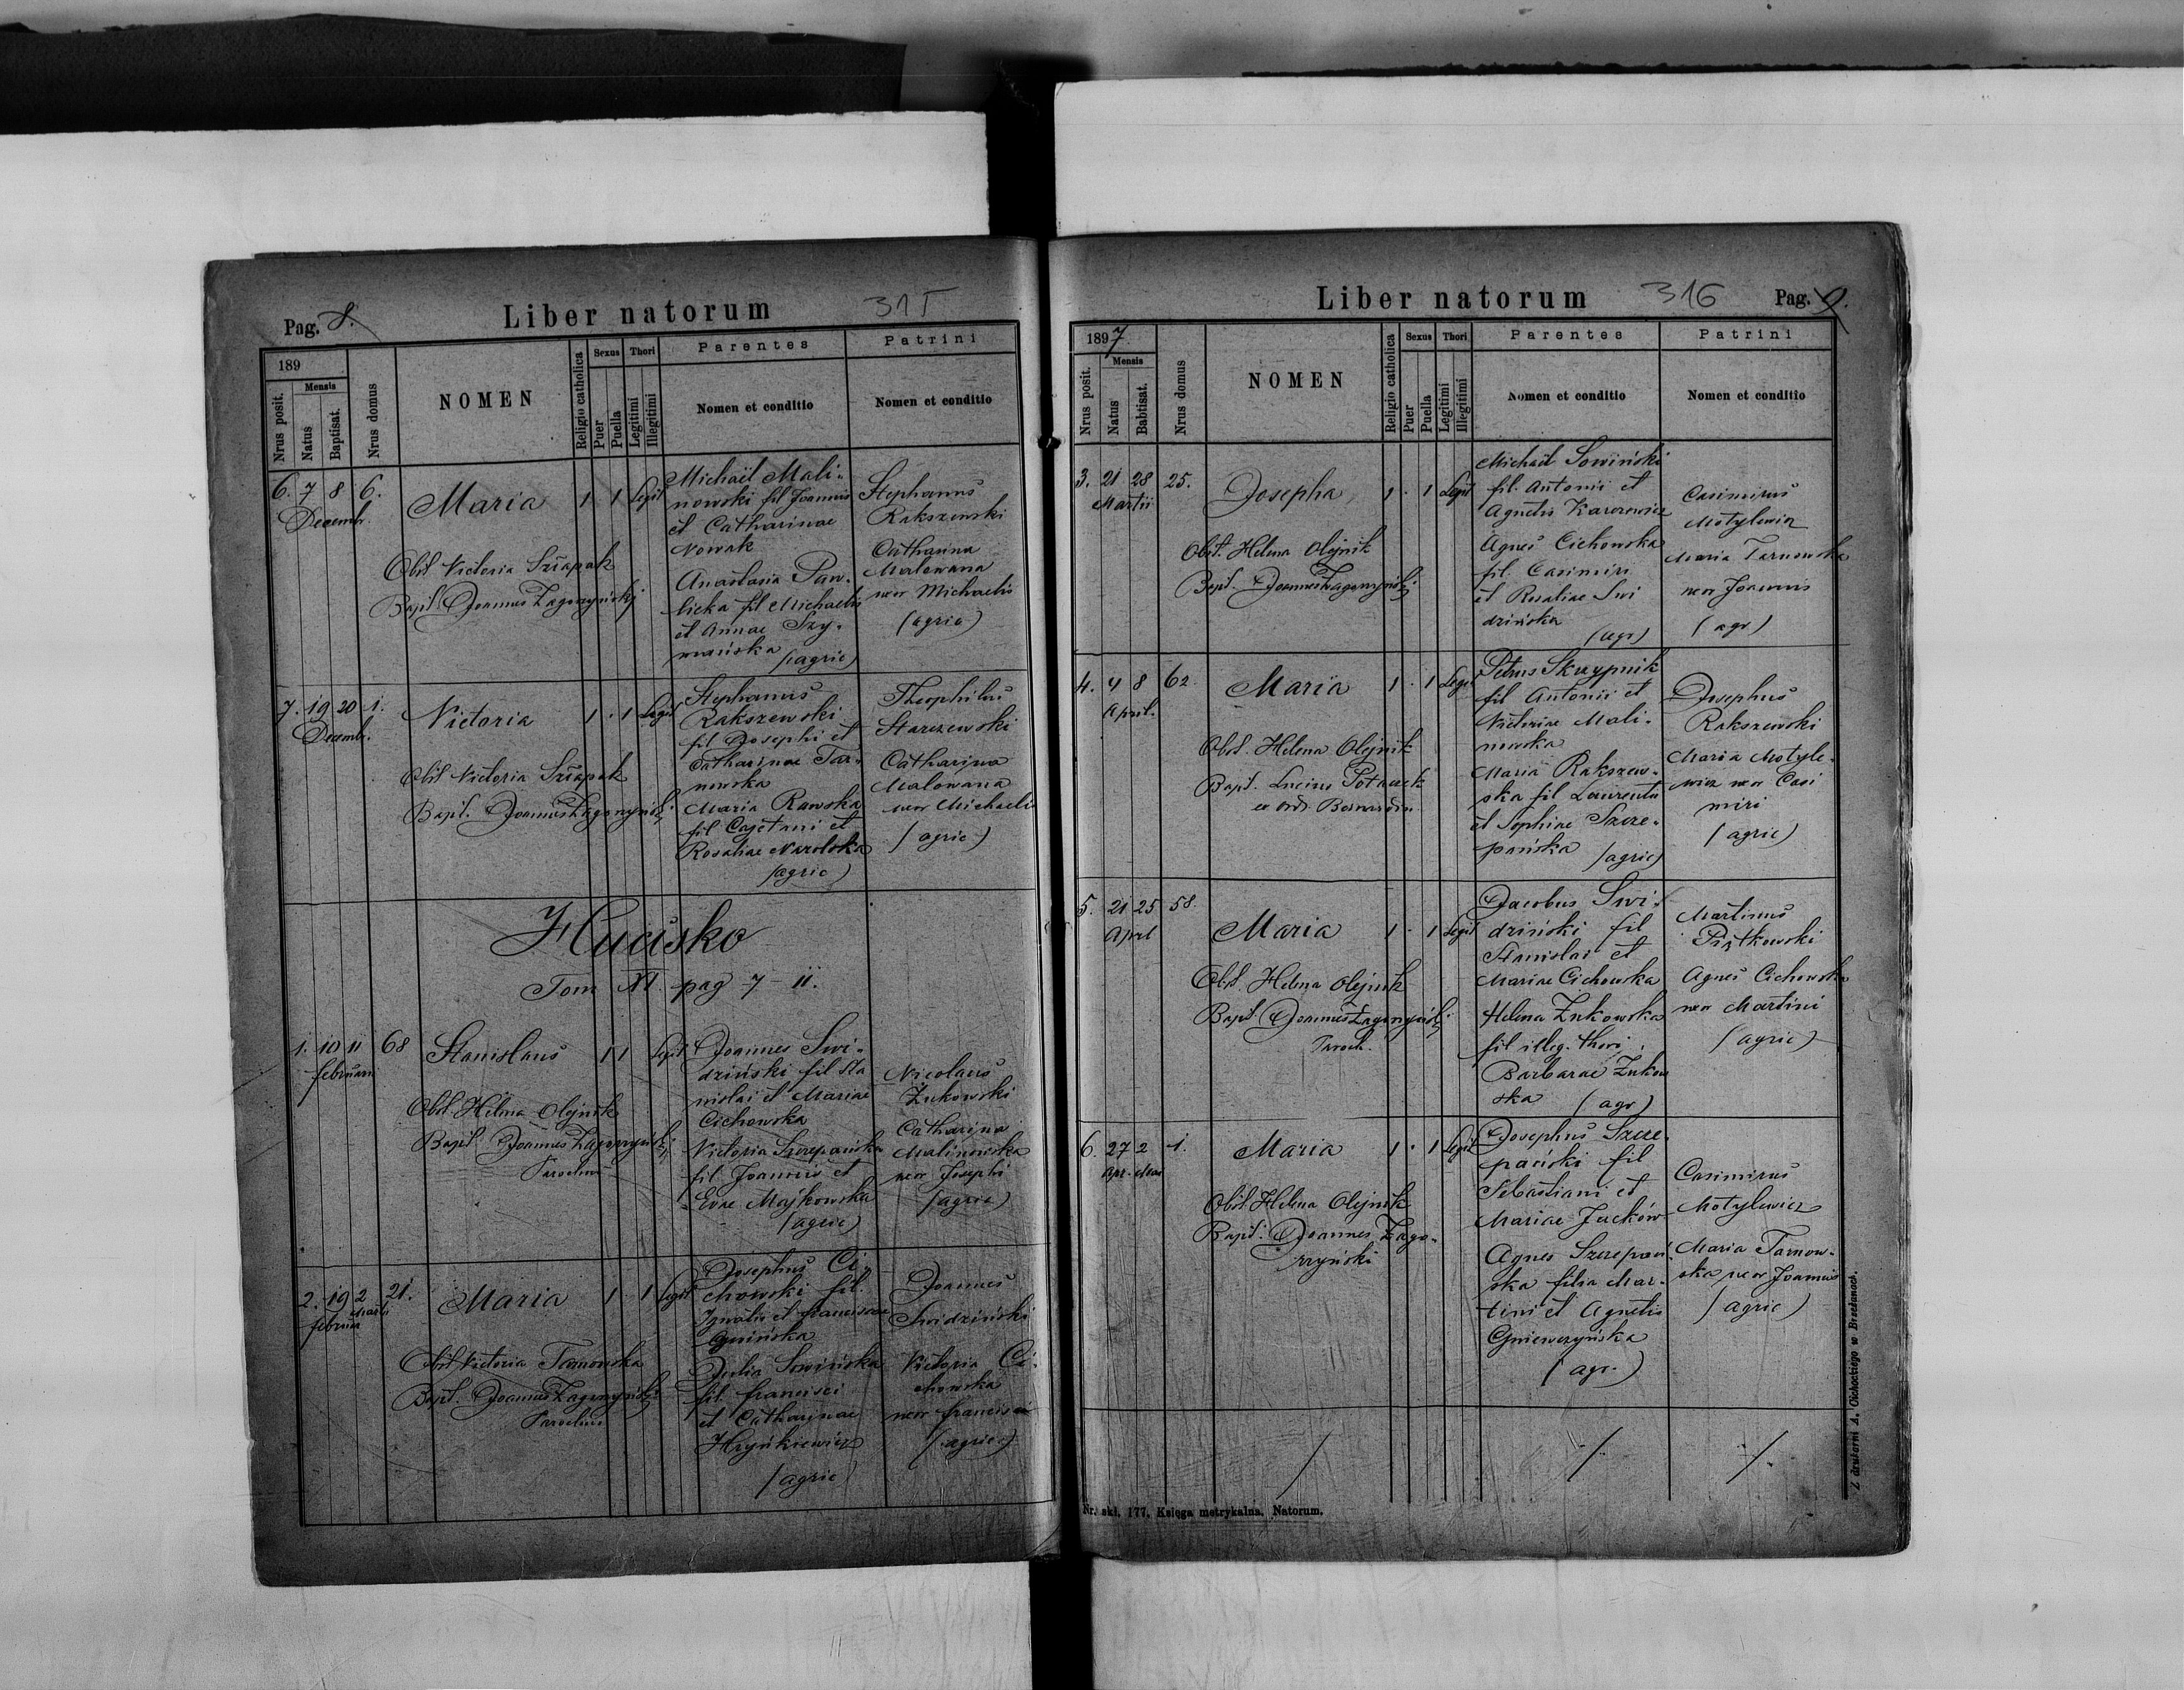 Pag. 8.
Liber natorum
315
189
Mensis
Nrus posit.
Natus
Baptisat.
Nrus domus
NOMEN
Religio catholica
Sexus
Puer
Puella
Thori
Legitimi
Illegitimi
Parentes
Nomen et conditio
Patrini
Nomen et conditio
6. 7 8 6.
Decemb.
Maria
1 1 Legit
Obst Victoria
Bapt. Joannes Zagorzyński
Michaël Mali-
nowski fil Joannis
et Catharinae
Nowak
Anastasia Paw-
licka fil Michaelis
et Annae Szy-
mańska
(agric)
Stephanus
Rakszewski
Catharina
Malowana
uxor Michaelis
(agric)
7. 19 20 1.
Decemb.
Victoria
1 . 1 Legit
Obst Victoria
Bapt. Joannes Zagorzyński
Stephanus
Rakszewski
fil Josephi et
Catharinae Tar-
nowska
Maria Rawska
fil Cajetani et
Rosaliae Narolska
(agric)
Theophilus
Starczewski
Catharina
Malowana
uxor Michaelis
(agric)
Hucisko
Tom XI. pag 7 - 11.
1. 10 11 68
februarii
Stanislaus
1 1 Legit
Obst. Helena Olejnik
Bapt. Joannes Zagorzyński
Parochus
Joannes Swi-
dziński fil Sta
nislai et Mariae
Cichowska
Victoria Szczepańska
fil Joannis et
Evae Majkowska
(agric)
Nicolaus
Żukowski
Catharina
Malinowska
uxor Josephi
(agric)
2. 19 2 21.
februar Martii
Maria
1 . 1 Legit
Obst Victoria Tarnowska
Bapt. Joannes Zagorzyński
Parochus
Josephus Ci-
chowski fil.
Ignatii et franciscae
Julia Sowińska
fil. francisci
et Catharinae
Hryńkiewicz
(agric)
Joannes
Swidziński
Victoria Ci-
chowska
uxor francisci
(agric)
Liber natorum
316
Pag. 9.
1897
Mensis
Nrus posit.
Natus
Babtisat.
Nrus domus
NOMEN
Religio catholica
Sexus
Puer
Puella
Thori
Legitimi
Illegitimi
Parentes
Nomen et conditio
Patrini
Nomen et conditio
3. 21 28 25.
Martii
Josepha
1 . 1 Legit
Obst. Helena Olejnik
Bapt. Joannes Zagorzyński
Michaël Sowiński
fil. Antonii et
Agnetis Karczewicz
Agnes Cichowska
fil. Casimiri
et Rosaliae Swi
dzińska
(agr)
Casimirus
Motylewicz
Maria Tarnowska
uxor Joannis
(agr)
4. 4 8 62.
April.
Maria
1 . 1 Legit
Obst. Helena Olejnik
Bapt. Lucius
ex ord. Bernardin.
Petrus Skrzypnik
fil Antonii et
Victoriae Mali-
nowska
Maria Rakszew-
ska fil Laurentii
et Sophiae Szcze-
pańska (agric)
Josephus
Rakszewski
Maria Motyle-
wicz uxor Casi
miri
(agric)
5. 21 25 58.
April
Maria
1 . 1 Legit
Obst. Helena Olejnik
Bapt. Joannes Zagorzyński
Paroch.
Jacobus Swi-
dziński fil
Stanislai et
Mariae Cichowska
Helena Żukowska
fil illeg. thori
Barbarae Żukow
ska (agr)
Martinus
Piątkowski
Agnes Cichowska
uxor Martini
(agric)
6. 27 2 1.
Apr. Maii
Maria
1 . 1 Legit
Obst. Helena Olejnik
Bapt. Joannes Zago-
rzyński
Josephus Szcze-
pański fil
Sebastiani et
Mariae Jucków
Agnes Szczepań-
ska filia Mar-
tini et Agnetis
Gniewczyńska
(agr.)
Casimirus
Motylewicz
Maria Tarnow-
ska uxor Joannis
(agric)
Nr. skł. 177. Księga metrykalna. Natorum.
Z drukarni A. Cichockiego w Brzeżanach.